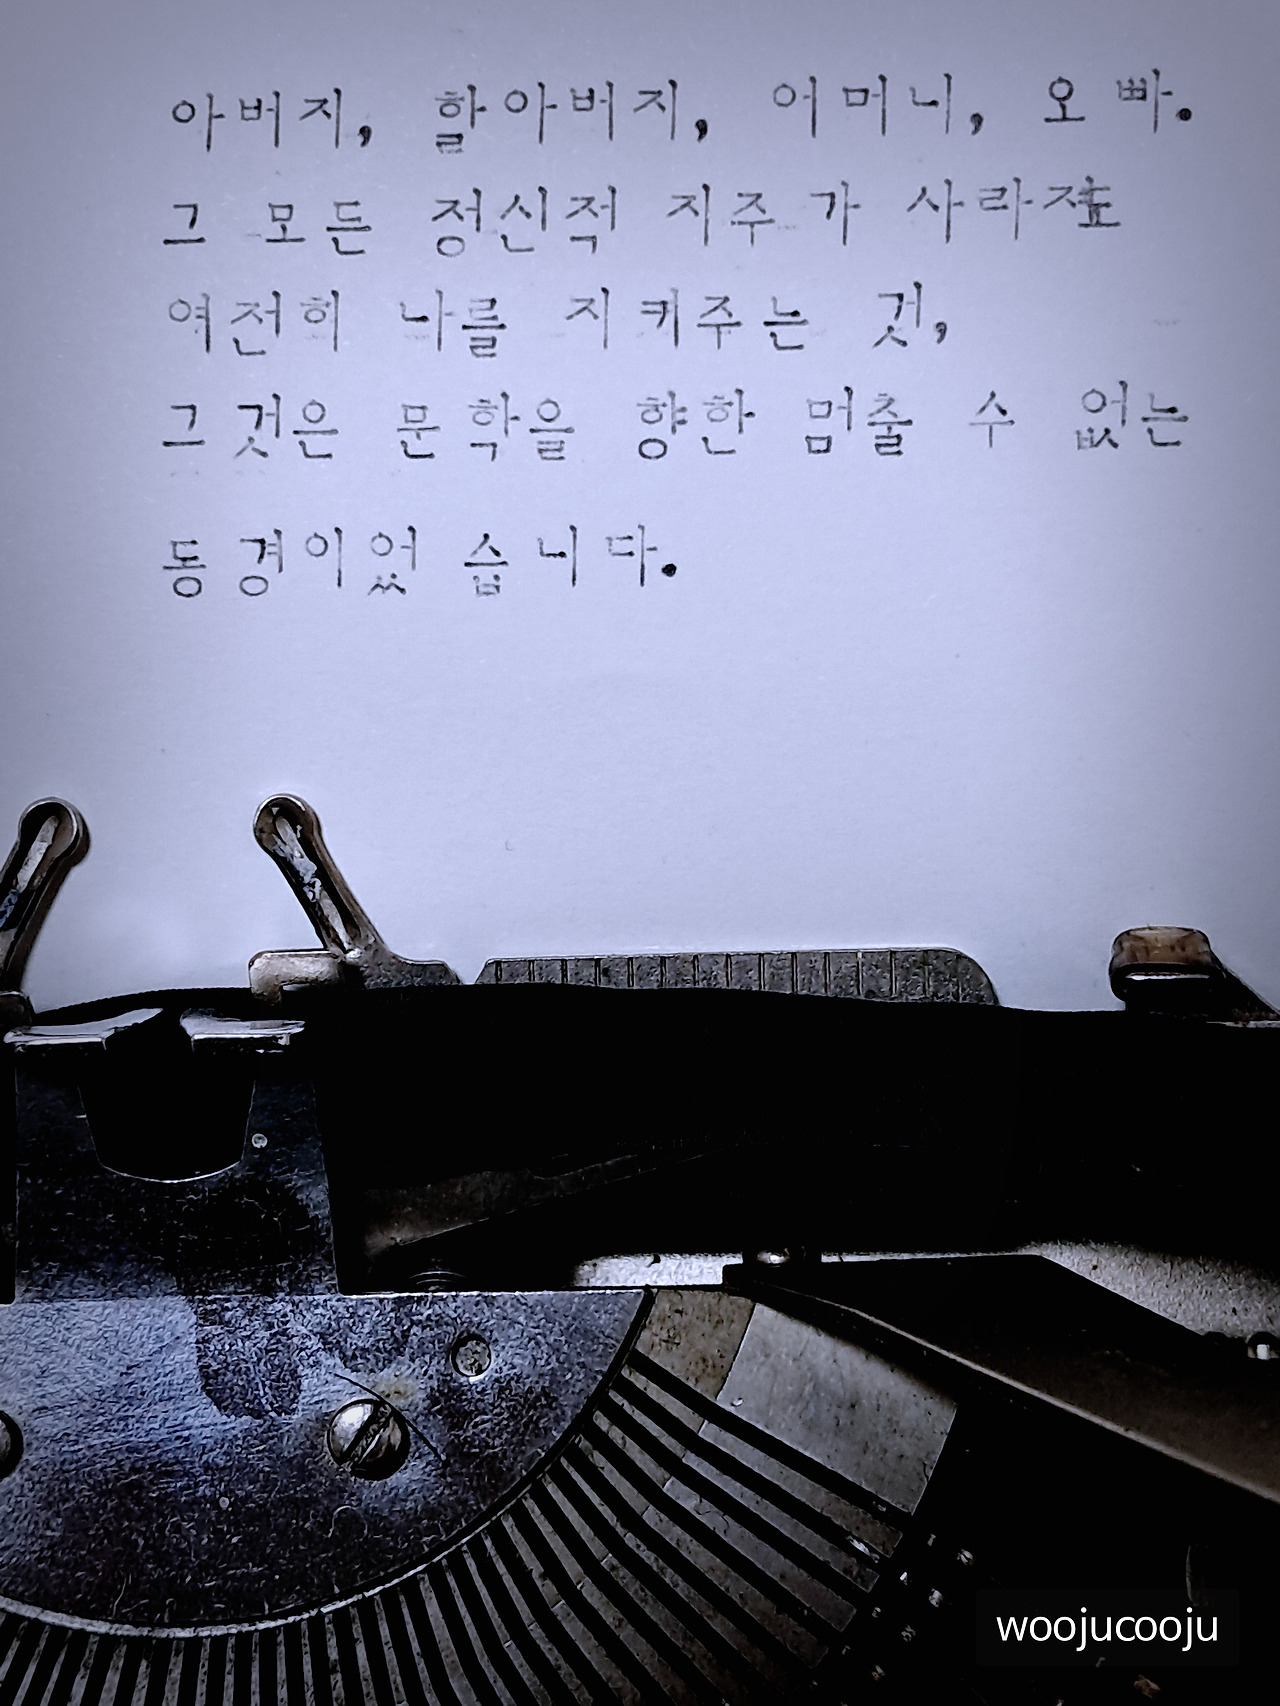 아버지, 할아버지, 어머니, 오빠.
그 모든 정신적 지주가 사라져도
여전히 나를 지키주는 것,
그것은 문학을 향한 멈출 수 없는
동경이었습니다.
woojucooju